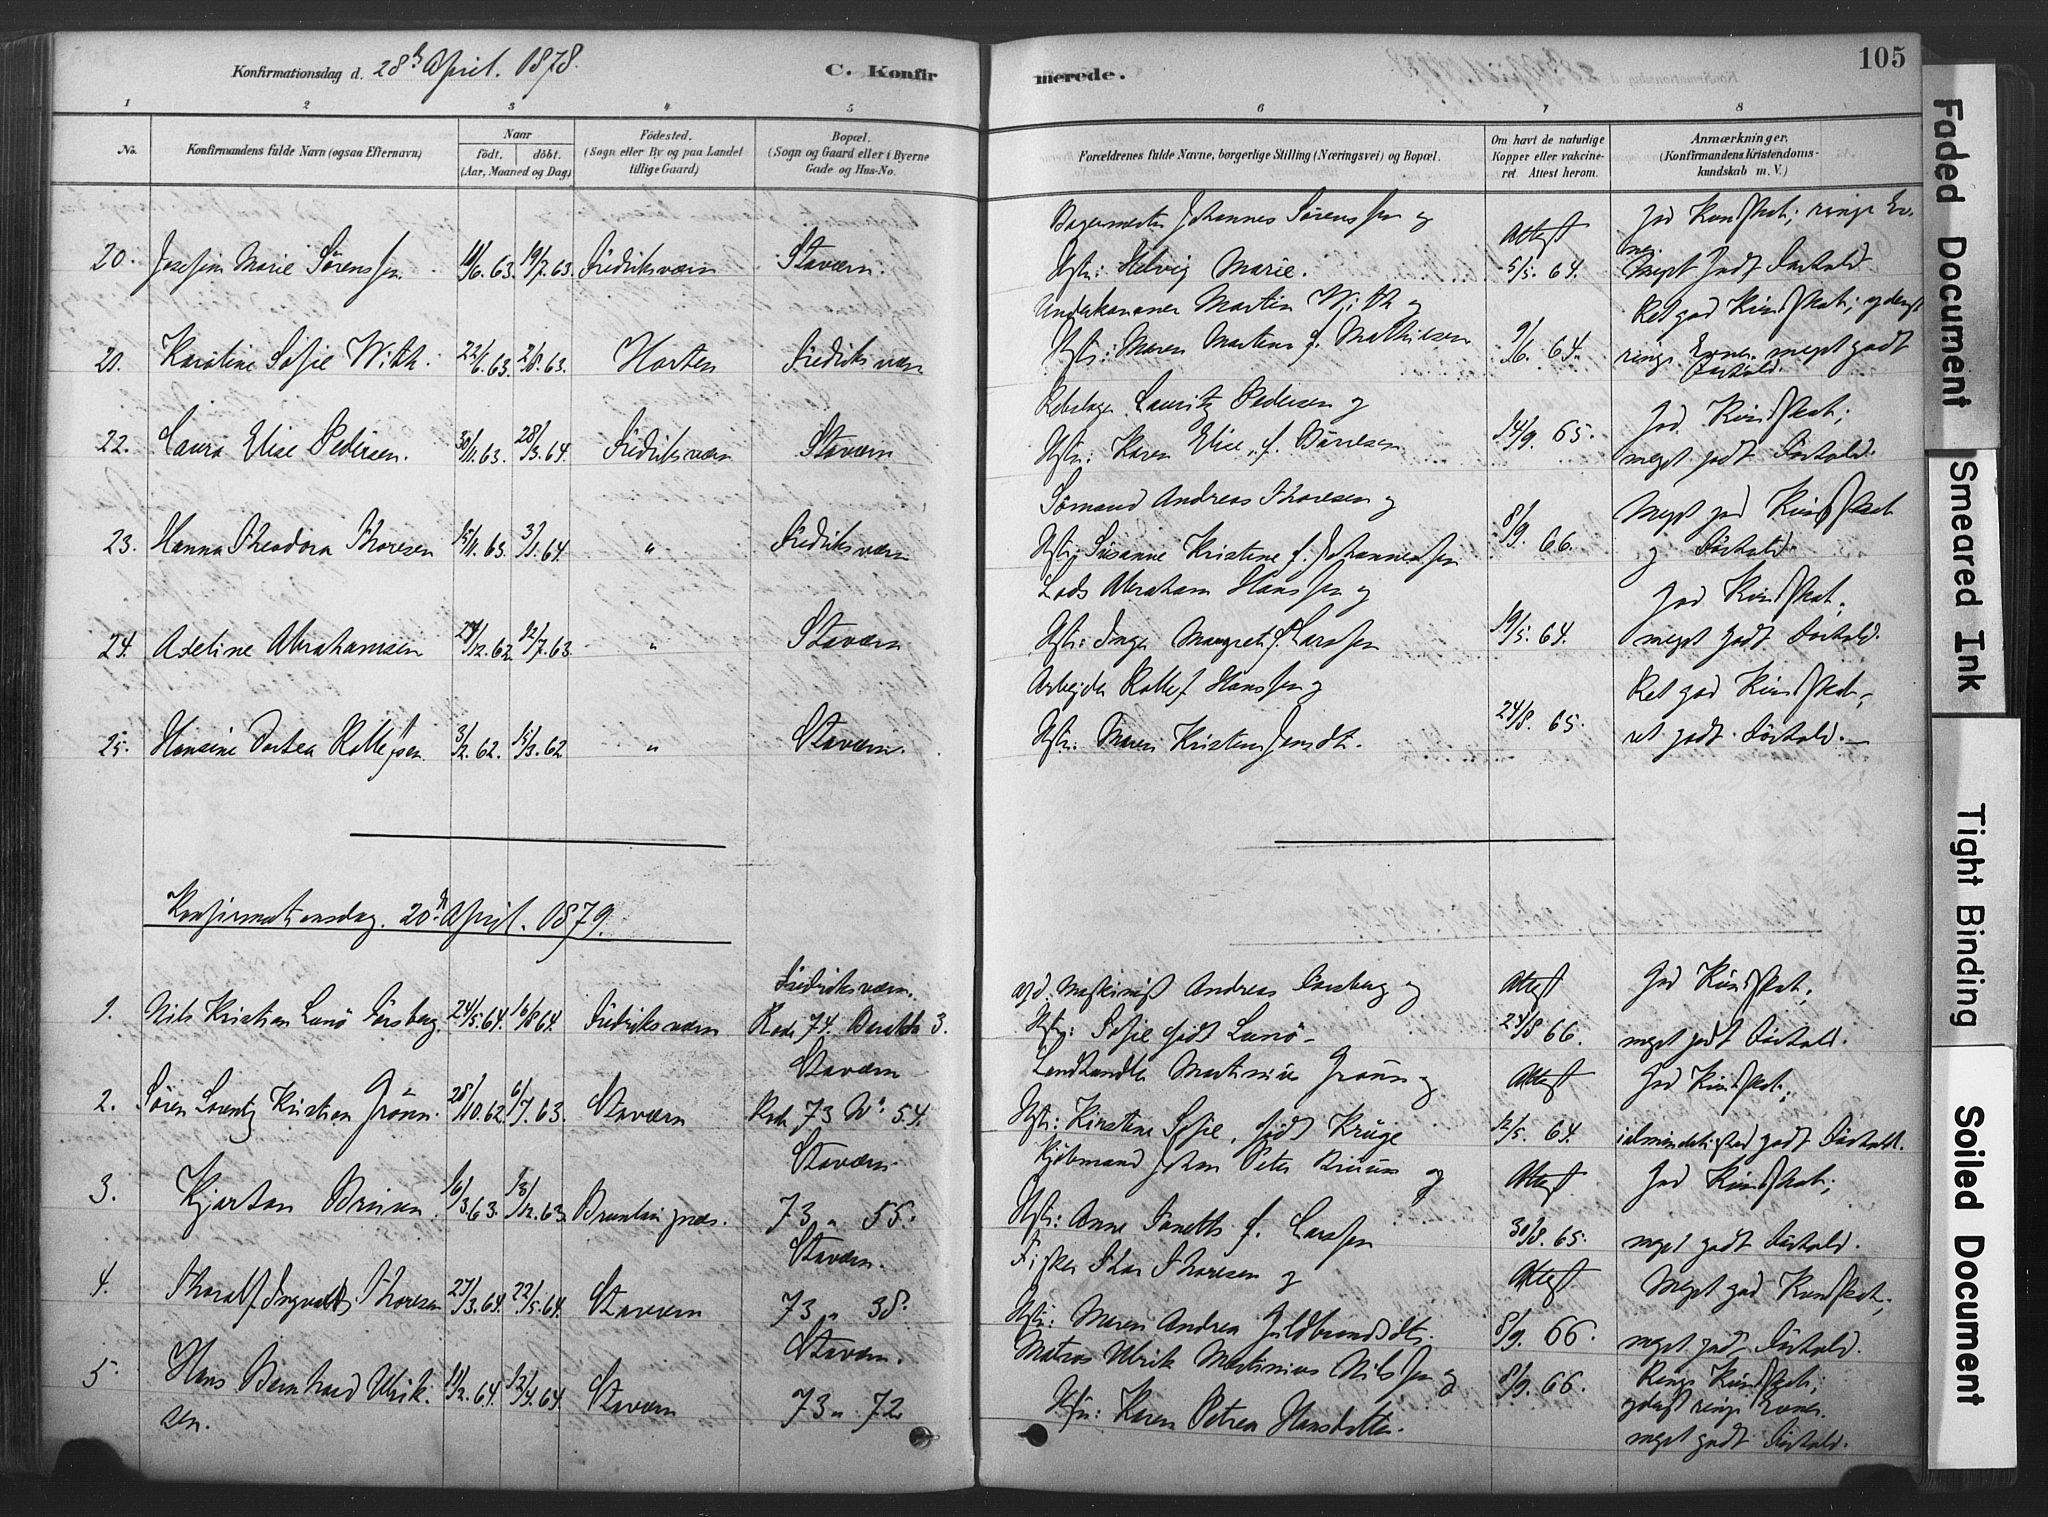 Konfirmationsdag d. 28de April. 1878.
C. Konfirmerede.
105
1 2 3 4 5 6 7 8
No.
Konfirmandens fulde Navn (ogsaa Efternavn)
Naar
født. døbt.
(Aar, Maaned og Dag)
Fødested.
(Sogn eller By og paa Landet
tillige Gaard)
Bopæl.
(Sogn og Gaard eller i Byerne
Gade og Hus-No.
Forældrenes fulde Navne, borgerlige Stilling (Næringsvei) og Bopæl.
Om havt de naturlige
Kopper eller vakcine-
ret Attest herom.
Anmærkninger.
(Konfirmandens Kristendoms-
kundskab m. V.)
20. Josefine Marie Sørenssen 19/7 63 Fredriksværn Staværn.
Bagermester Johannes Sørenssen og
Hstr: Helvig Marie.
Attest
5/5. 64.
God Kundskab; ringe Ev-
ner. Meget godt Forhold.
21. Karoline Sofie With. 22/6 63. 2/8. 63. Horten Fredriksværn
Underkanoner Martin With og
Hstr: Maren Martine f. Mathiesen
9/6. 64.
Ret god Kundskab; yderst
ringe Evner. meget godt
Forhold.
22. Laura Elise Pedersen. 30/11. 63. 28/3. 64. Fredriksværn Staværn
Rebslager Lauritz Pedersen og
Hstr: Karen Elise f. Børresen
14/9. 65.
God Kundskab;
meget godt Forhold.
23. Hanna Theodora Thoresen 15/11. 63. 3/1. 64. " Fredriksværn
Sømand Andreas Thoresen og
Hstr; Susanne Kristine f. Johannessen
8/9. 66.
Meget god Kundskab
og Forhold.
24. Adeline Abrahamsen 12. 62. 12/7. 63. " Staværn
Lods Abraham Hanssen og
Hstr: Inger Margrete f. Larssen
19/5. 64.
God Kundskab;
meget godt Forhold.
25. Hansine Dortea Rollefsen. 3/2. 62. 15/3. 62 " Staværn.
Arbejder Rollef Hanssen og
Hstr: Maren Kristens
24/8. 65.
Ret god Kundskab;
ret godt Forhold.
Konfirmationsdag. 20de April. 1879.
1. Nils Kristian Lunø Forsberg 24/5. 64. 16/8 64. Fredriksværn
Fredriksværn.
Rode 74. 3.
afd. Maskinist Andreas Forsberg og
Hstr: Sofie født Lunø
Attest
24/8 66.
God Kundskab;
meget godt Forhold.
2. Søren Lorentz Kristian Grønn. 28/10. 62. 6/7. 63. Staværn
Staværn
Rode 73 No 54.
Landhandler Martinius Grønn og
Hstr: Kirstine Sofie, født Krüge
Attest
12/5. 64.
God Kundskab;
godt Forhold.
3. Kjartan Bruun. 16/3. 63. 13/12. 63. Brunlanæs.
Staværn.
73 " 55.
Kjøbmand Johan Peter Bruun og
Hstr: Anne Janette f. Larssen
Attest
30/8. 65.
God Kundskab;
meget godt Forhold.
4. Thoralf Ingvald Thoresen 27/3. 64. 22/5. 64. Staværn
Staværn.
73 " 38.
Fisker Thor Thoresen og
Hstr: Maren Andrea Guldbrandsdtr.
Attest
8/9. 66.
Meget god Kundskab;
meget godt Forhold.
5. Hans Bernhard Ulrik-
sen. 11/2. 64. 12/4. 64. Staværn
Staværn.
73 " 72
Matros Ulrik Martinius Nilssen og
Hstr: Karen Petrea Hansdatter.
8/9. 66.
Ringe Kundskab;
yderst ringe Evner.
meget godt Forhold.
Faded Document
Smeared Ink
Tight Binding
Soiled Document